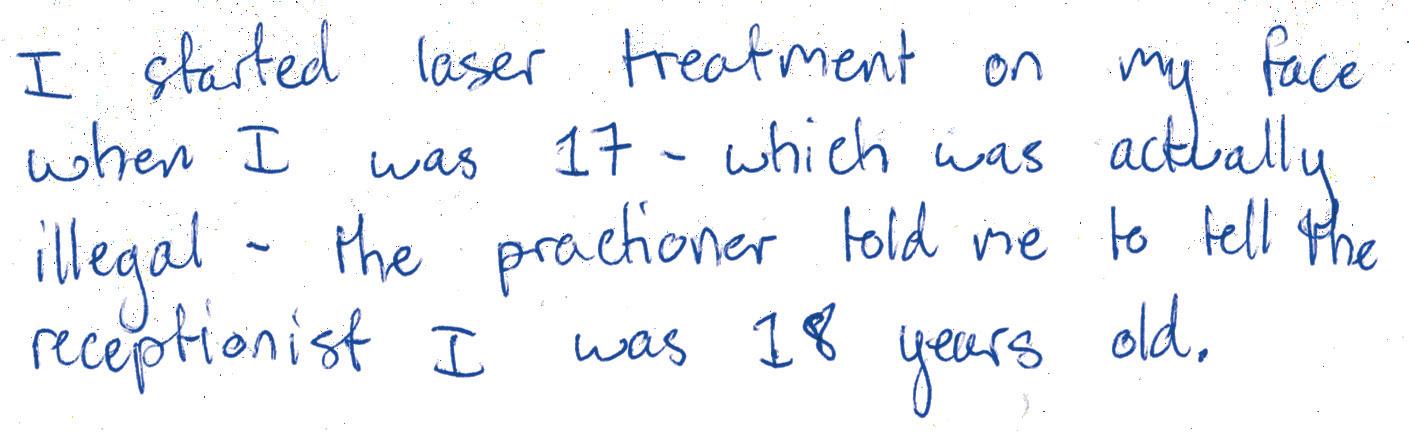 I started laser treatment on my face
when I was 17 - which was actually
illegal - the practioner told me to tell the
receptionist I was 18 years old.